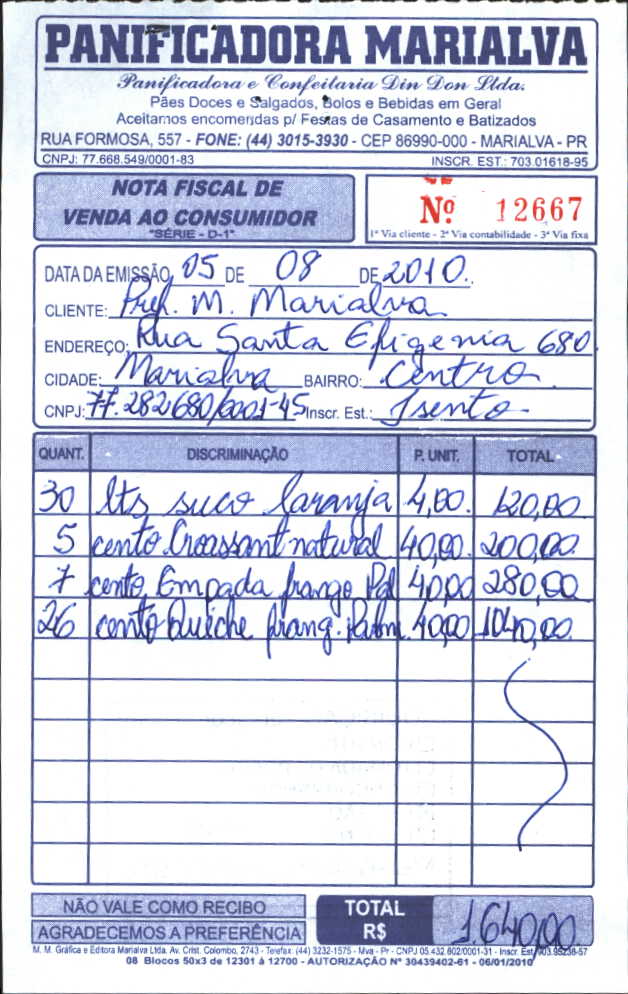 PANIFICADORA MARIALVA
Panificadora e Confeitaria Din Don Ltda.
Pães Doces e Salgados, Bolos e Bebidas em Geral
Aceitamos encomendas p/ Festas de Casamento e Batizados
RUA FORMOSA, 557 - FONE: (44) 3015-3930 - CEP 86990-000 - MARIALVA - PR
CNPJ: 77.668.549/0001-83 INSCR. EST.: 703.01618-95
NOTA FISCAL DE
VENDA AO CONSUMIDOR
"SÉRIE - D-1"
Nº 12667
1ª Via cliente - 2ª Via contabilidade - 3ª Via fixa
DATA DA EMISSÃO 05 DE 08 DE 2010.
CLIENTE: Pref. M. Marialva
ENDEREÇO: Rua Santa Efigenia 680
CIDADE: Marialva BAIRRO: Centro
CNPJ: 77.282/680/0001-45 Inscr. Est.: Isento
QUANT. DISCRIMINAÇÃO P. UNIT. TOTAL
30 lts suco laranja 4,00. 120,00
5 cento Croassant natural 40,00. 200,00.
7 cento Empada frango Pal 40,00 280,00
26 cento Quiche frang. Palm. 40,00 1040,00.
NÃO VALE COMO RECIBO
AGRADECEMOS A PREFERÊNCIA
TOTAL
R$ 1.640,00
M. M. Gráfica e Editora Marialva Ltda. Av. Crist. Colombo, 2743 - Telefax: (44) 3232-1575 - Mva - Pr - CNPJ 05.432.602/0001-31 - Inscr. Est. 903.95238-57
08 Blocos 50x3 de 12301 à 12700 - AUTORIZAÇÃO Nº 30439402-61 - 06/01/2010